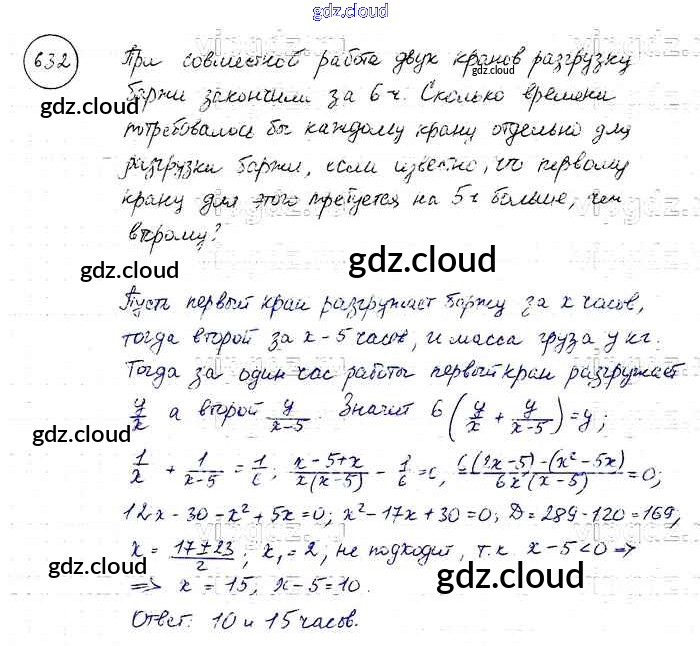 gdz.cloud
632
При совместной работе двух кранов разгрузку
gdz.cloud
баржи закончили за 6 ч. Сколько времени
gdz.cloud
потребовалось бы каждому крану отдельно для
разгрузки баржи, если известно, что первому
крану для этого требуется на 5ч больше, чем
второму?
gdz.cloud
gdz.cloud
Пусть первый кран разгружает баржу за x часов,
тогда второй за x-5 часов, и масса груза y кг.
Тогда за один час работы первый кран разгружает
y/x а второй y/(x-5). Значит 6(y/x + y/(x-5)) = y;
gdz.cloud
gdz.cloud
1/x + 1/(x-5) = 1/6; (x-5+x)/(x(x-5)) - 1/6 = 0, (6(2x-5)-(x²-5x))/(6x(x-5)) = 0;
12x-30-x²+5x=0; x²-17x+30=0; D=289-120=169,
x = (17±23)/2; x₁=2, не подходит, т.к x-5<0 ⇒
⇒ x = 15, x-5=10.
gdz.cloud
gdz.cloud
Ответ: 10 и 15 часов.
gdz.cloud